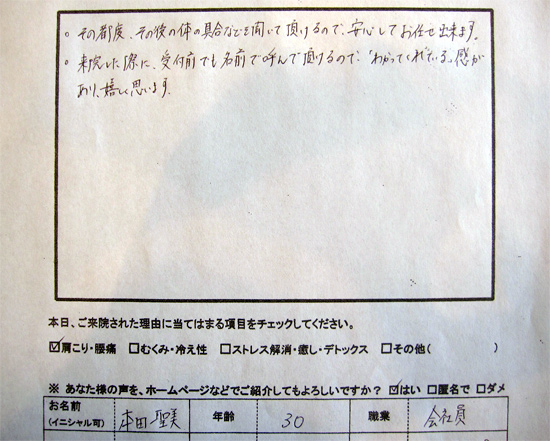 。その都度、その後の体の具合などを聞いて頂けるので、安心してお任せ出来ます。
。来院した際に、受付前でも名前で呼んで頂けるので、「わかってくれている」感が
あり、嬉しく思います。
本日、ご来院された理由に当てはまる項目をチェックしてください。
☑肩こり・腰痛 □むくみ・冷え性 □ストレス解消・癒し・デトックス □その他( )
※ あなた様の声を、ホームページなどでご紹介してもよろしいですか？ ☑はい □匿名で □ダメ
お名前 (イニシャル可) 本田 聖美 年齢 30 職業 会社員